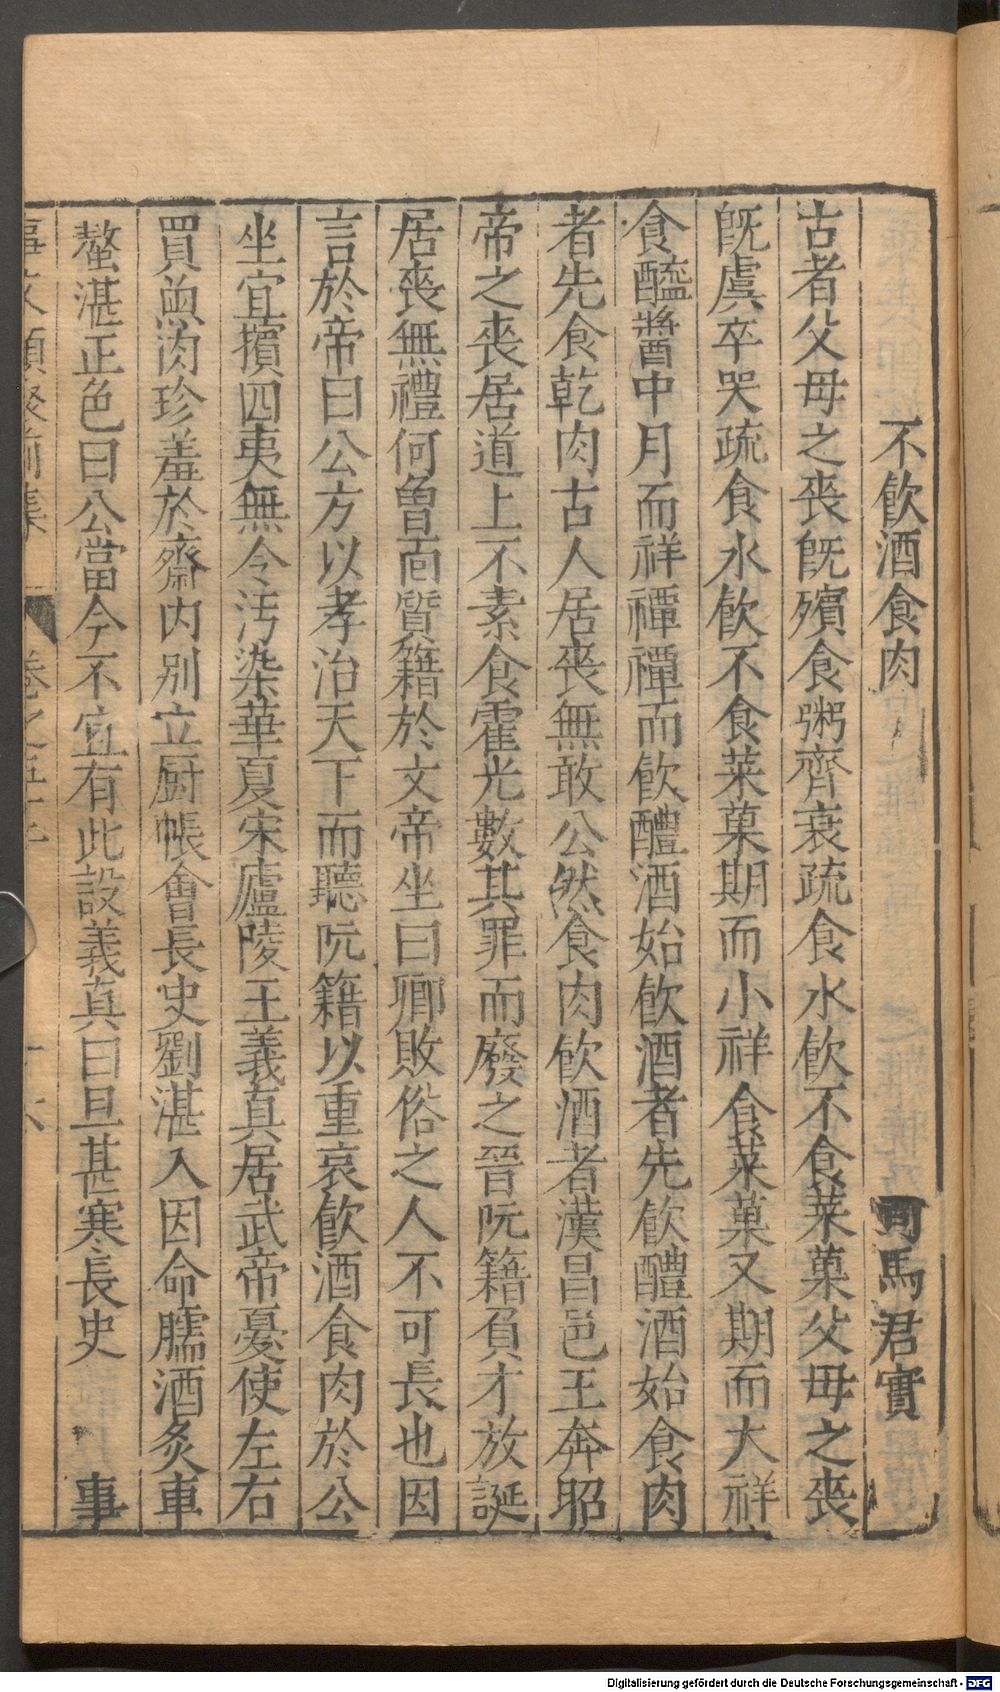 不飲酒食肉　司馬君實
古者父母之喪旣殯食粥齊衰疏食水飲不食菜菓父母之喪
旣虞卒哭疏食水飲不食菜菓期而小祥食菜菓又期而大祥
食醯醬中月而祥禫禫而飲醴酒始飲酒者先飲醴酒始食肉
者先食乾肉古人居喪無敢公然食肉飲酒者漢昌邑王奔昭
帝之喪居道上不素食霍光數其罪而廢之晉阮籍負才放誕
居喪無禮何曾面質籍於文帝坐曰卿敗俗之人不可長也因
言於帝曰公方以孝治天下而聽阮籍以重哀飲酒食肉於公
坐宜擯四夷無令汚染華夏宋廬陵王義真居武帝憂使左右
買魚肉珍羞於齋内別立厨帳會長史劉湛入因命臑酒炙車
螯湛正色曰公當今不宜有此設義真曰旦甚寒長史　事
事文類聚前集　卷之五十
Digitalisierung gefördert durch die Deutsche Forschungsgemeinschaft - DFG